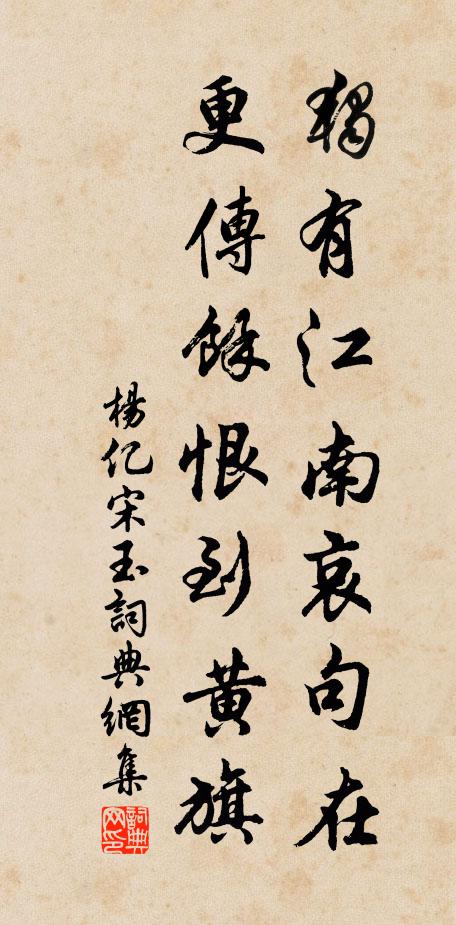 獨有江南哀句在
更傳餘恨到黃旗
楊億宋玉詞典網集
詞典网印